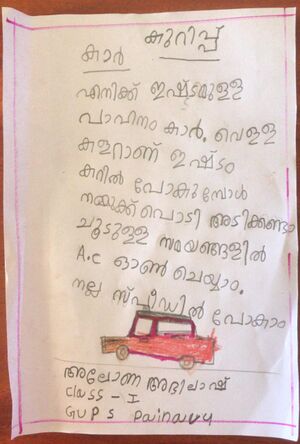 കുറിപ്പ്
കാർ
എനിക്ക് ഇഷ്ടമുള്ള
വാഹനം കാർ. വെള്ള
കളറാണ് ഇഷ്ടം
കറിൽ പോകുമ്പോൾ
നമുക്ക് പൊടി അടിക്കണ്ടാ
ചൂടുള്ള സമയങ്ങളിൽ
A.c ഓൺ ചെയ്യാം.
നല്ല സ്പീഡിൽ പോകാം
അലോണ അഭിലാഷ്
Class - I
GUPS Painavu